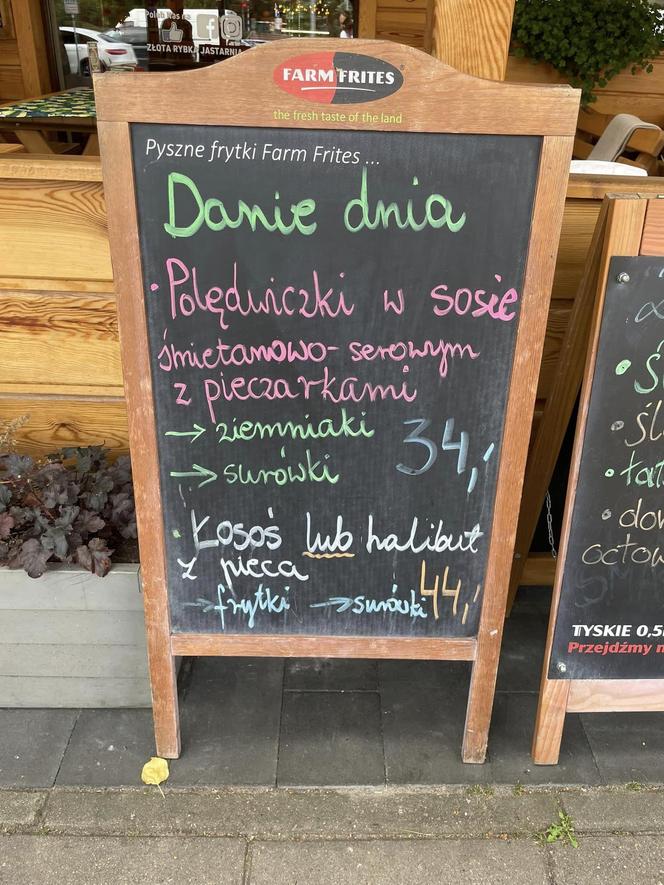 Polub nas na
ZŁOTA RYBKA JASTARNIA
FARM FRITES
the fresh taste of the land
Pyszne frytki Farm Frites ...
Danie dnia
• Polędwiczki w sosie
śmietanowo-serowym
z pieczarkami
→ ziemniaki 34,-
→ surówki
• Łosoś lub halibut
z pieca
→ frytki → surówki 44,-
octow
TYSKIE 0,5
Przejdźmy n